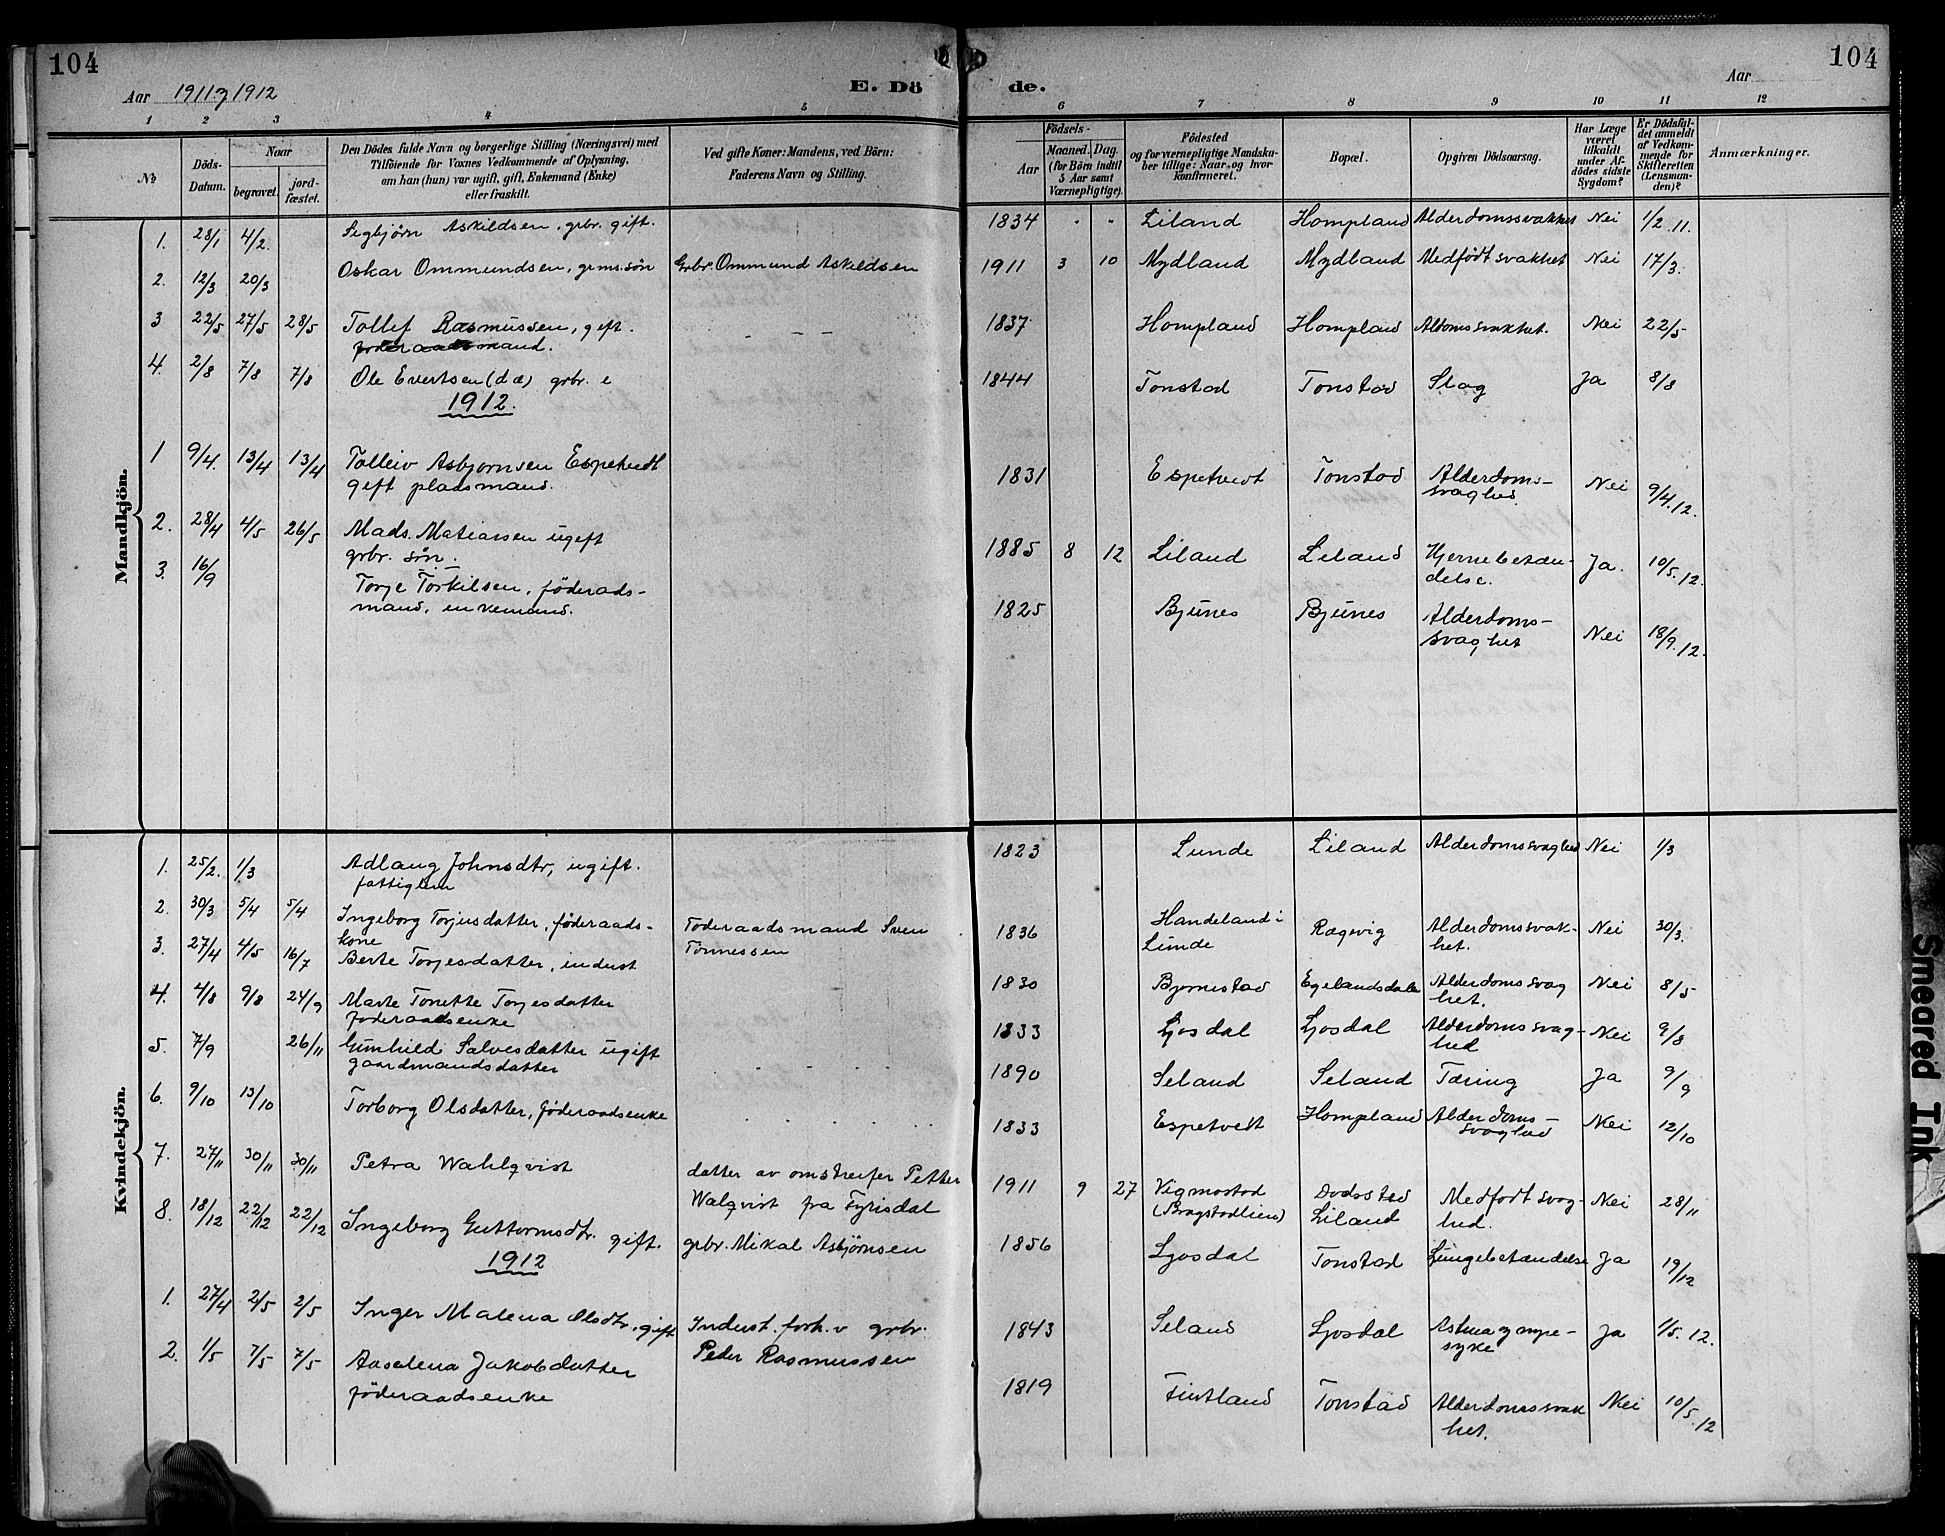 104
104
Aar 1911 og 1912
E. Dö
de.
Aar
1 2 3 4 5
6 7 8 9 10 11 12
No
Döds-Datum.
Naar
begravet.
jord-fæstet.
Den Dödes fulde Navn og borgerlige Stilling (Næringsvei) med
Tilföiende for Voxnes Vedkommende af Oplysning,
om han (hun) var ugift, gift, Enkemand (Enke)
eller fraskilt.
Ved gifte Koner: Mandens, ved Börn:
Faderens Navn og Stilling.
Födsels-
Aar
Maaned. Dag.
(for Börn indtil
5 Aar samt
Værnepligtige).
Födested
og for værnepligtige Mandska-
ber tillige: Naar og hvor
konfirmeret.
Bopæl.
Opgiven Dödsaarsag.
Har Læge
været
tilkaldt
under Af-
dödes sidste
Sygdom?
Er Dödsfal-
det anmeldt
af Vedkom-
mende for
Skifteretten
(Lensman-
den)?
Anmærkninger.
Mandkjön.
1. 28/1 4/2. Segbjørn Askildsen, grbr. gift. 1834 " " Liland Hompland Alderdomssvakhet Nei 1/2.11.
2. 12/3 20/3 Oskar Ommundsen, grms. søn Grbr. Ommund Askildsen 1911 3 10 Mydland Mydland Medfødt svakhet Nei 17/3.
3 22/5 27/5 28/5 Tollef Rasmussen, gift. 1837 Hompland Hompland Aldomssvakhet. Nei 22/5
foderaadsmand.
4. 2/8 7/8 7/8 Ole Evertsen (d æ) grbr. e 1844 Tonstad Tonstad Slag Ja 8/8
1912.
1 9/4. 13/4 13/4 Tolleiv Asbjornsen Espetvedt 1831 Espetvedt Tonstad Alderdoms- Nei 9/4.12.
gift pladsmand. svaghed
2. 28/4 4/5 26/5 Mads. Matiassen ugift 1885 8 12 Liland Leland Hjernebetæn- Ja. 10/5.12.
grbr. søn. delse.
3. 16/9 Torje Torkilsen, föderads- 1825 Bjunes Bjunes Alderdoms- Nei 18/9.12.
mand, enkemand. svaghet
Kvindekjön.
1. 25/2. 1/3 Adlaug Johnsdtr, ugift. 1823 Lunde Liland Alderdomssvaghed Nei 1/3
fattiglem
2. 30/3 5/4 5/4 Ingeborg Torjusdatter, føderaads- Føderaadsmand Sven 1836 Handeland i Ragevig Alderdomssvak- Nei 30/3.
kone Tønnessen Lunde het.
3. 27/4 4/5 16/7 Berte Torjesdatter, inderst 1830 Bjørnestad Egelandsdalen Alderdomssvag Nei 8/5
het.
4. 4/8 9/8 24/9 Marte Tonette Torjesdatter 1833 Ljosdal Ljosdal Alderdomssvag- Nei 9/8
føderaadsenke hed
5. 7/9 26/11 Gunhild Salvesdatter ugift 1890 Seland Seland Tæring Ja 9/9
gaardmandsdatter
6. 9/10 13/10 Torborg Olsdatter, føderaadsenke 1833 Espetvedt Hompland Alderdoms- Nei 12/10
svaghed
7. 27/11 30/11 30/11 Petra Wahlqvist datter av omstreifer Petter 1911 9 27 Vigmostad Dødssted Medfødt svag- Nei 28/11
Walqvist fra Fyrisdal (Bragstadlien) Liland hed.
8. 18/12 22/12 22/12 Ingeborg Guttormsdtr. gift. grbr. Mikal Asbjørnsen 1856 Ljosdal Tonstad Lungebetændelse Ja 19/12
1912
1. 27/4 2/5 2/5 Inger Malena Olsdtr. gift Inderst. forh. v grbr. 1843 Seland Ljosdal Astma og nyre- Ja 1/5.12.
Peder Rasmussen syke
2. 1/5 7/5 7/5 Aaselena Jakobsdatter 1819 Fintland Tonstad Alderdomssvak Nei 10/5.12
föderaadsenke het.
Smeared Ink